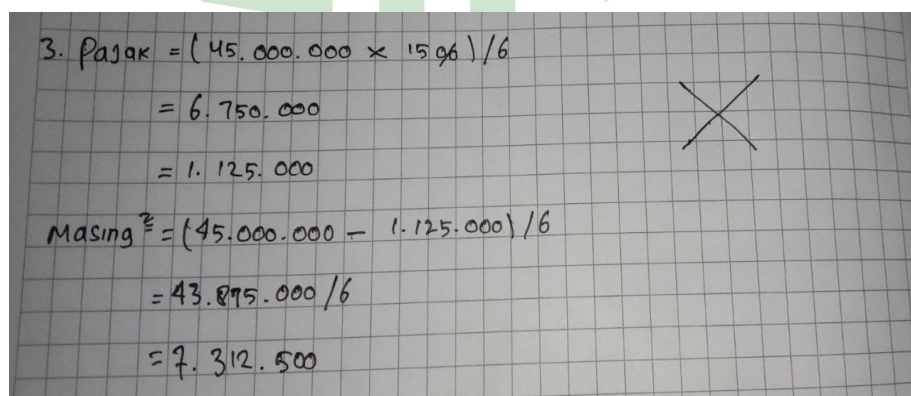 3. Pajak = (45.000.000 × 15%)/6
= 6.750.000
= 1.125.000
Masing² = (45.000.000 - 1.125.000)/6
= 43.875.000/6
= 7.312.500